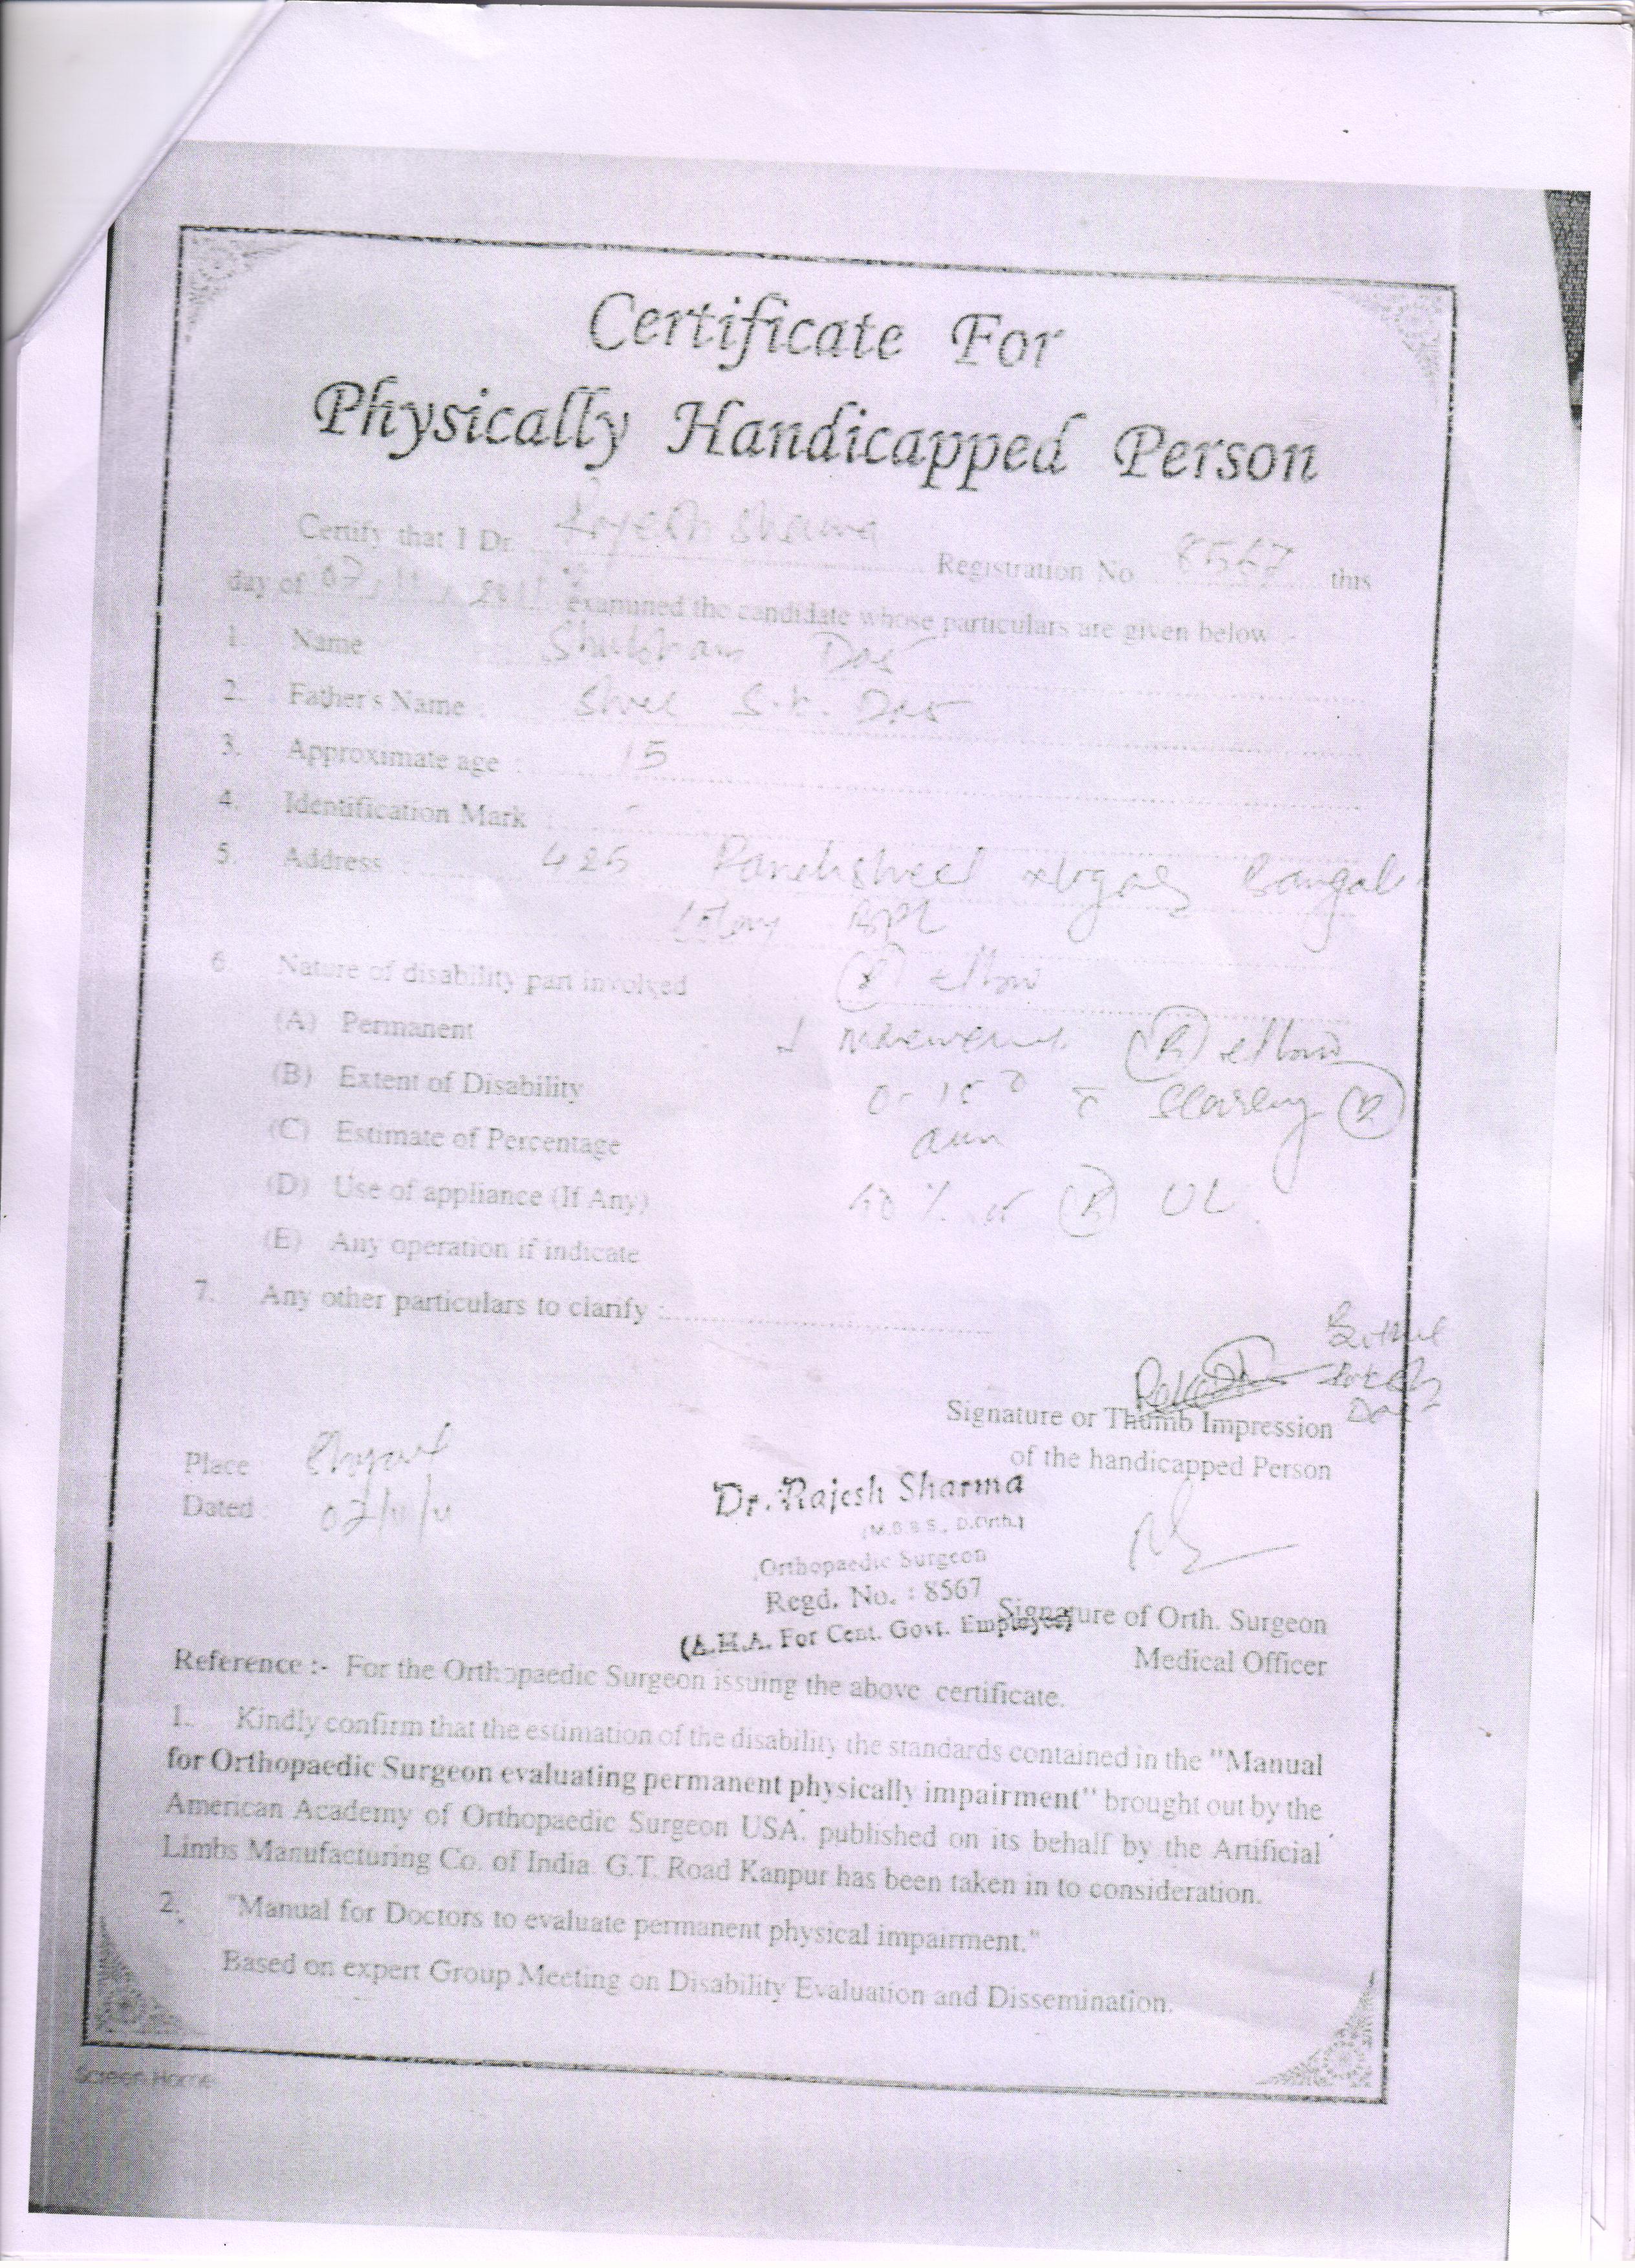 Certificate For
Physically Handicapped Person
Certify that I Dr. Rajesh Sharma Registration No 8567 this
day of 07, 11, 2011 examined the candidate whose particulars are given below :-
1. Name Shubham Das
2. Father's Name : Shree S.K. Das
3. Approximate age : 15
4. Identification Mark : -
5. Address : 425 Panchsheel Bangali
Colony BPL
6. Nature of disability part involved (R) elbow
(A) Permanent movement (R) elbow
(B) Extent of Disability 0-15° (R)
(C) Estimate of Percentage arm
(D) Use of appliance (If Any) 40 % (R) UL
(E) Any operation if indicate
7. Any other particulars to clarify :
Das
Signature or Thumb Impression
of the handicapped Person
Place
Dated 07/11/11
Dr. Rajesh Sharma
(M.B.B.S., D.Orth.)
Orthopaedic Surgeon
Regd. No. : 8567
(A.M.A. For Cent. Govt. Employee)
Signature of Orth. Surgeon
Medical Officer
Reference :- For the Orthopaedic Surgeon issuing the above certificate.
1. Kindly confirm that the estimation of the disability the standards contained in the "Manual
for Orthopaedic Surgeon evaluating permanent physically impairment" brought out by the
American Academy of Orthopaedic Surgeon USA. published on its behalf by the Artificial
Limbs Manufacturing Co. of India G.T. Road Kanpur has been taken in to consideration.
2. "Manual for Doctors to evaluate permanent physical impairment."
Based on expert Group Meeting on Disability Evaluation and Dissemination.
Screen Home